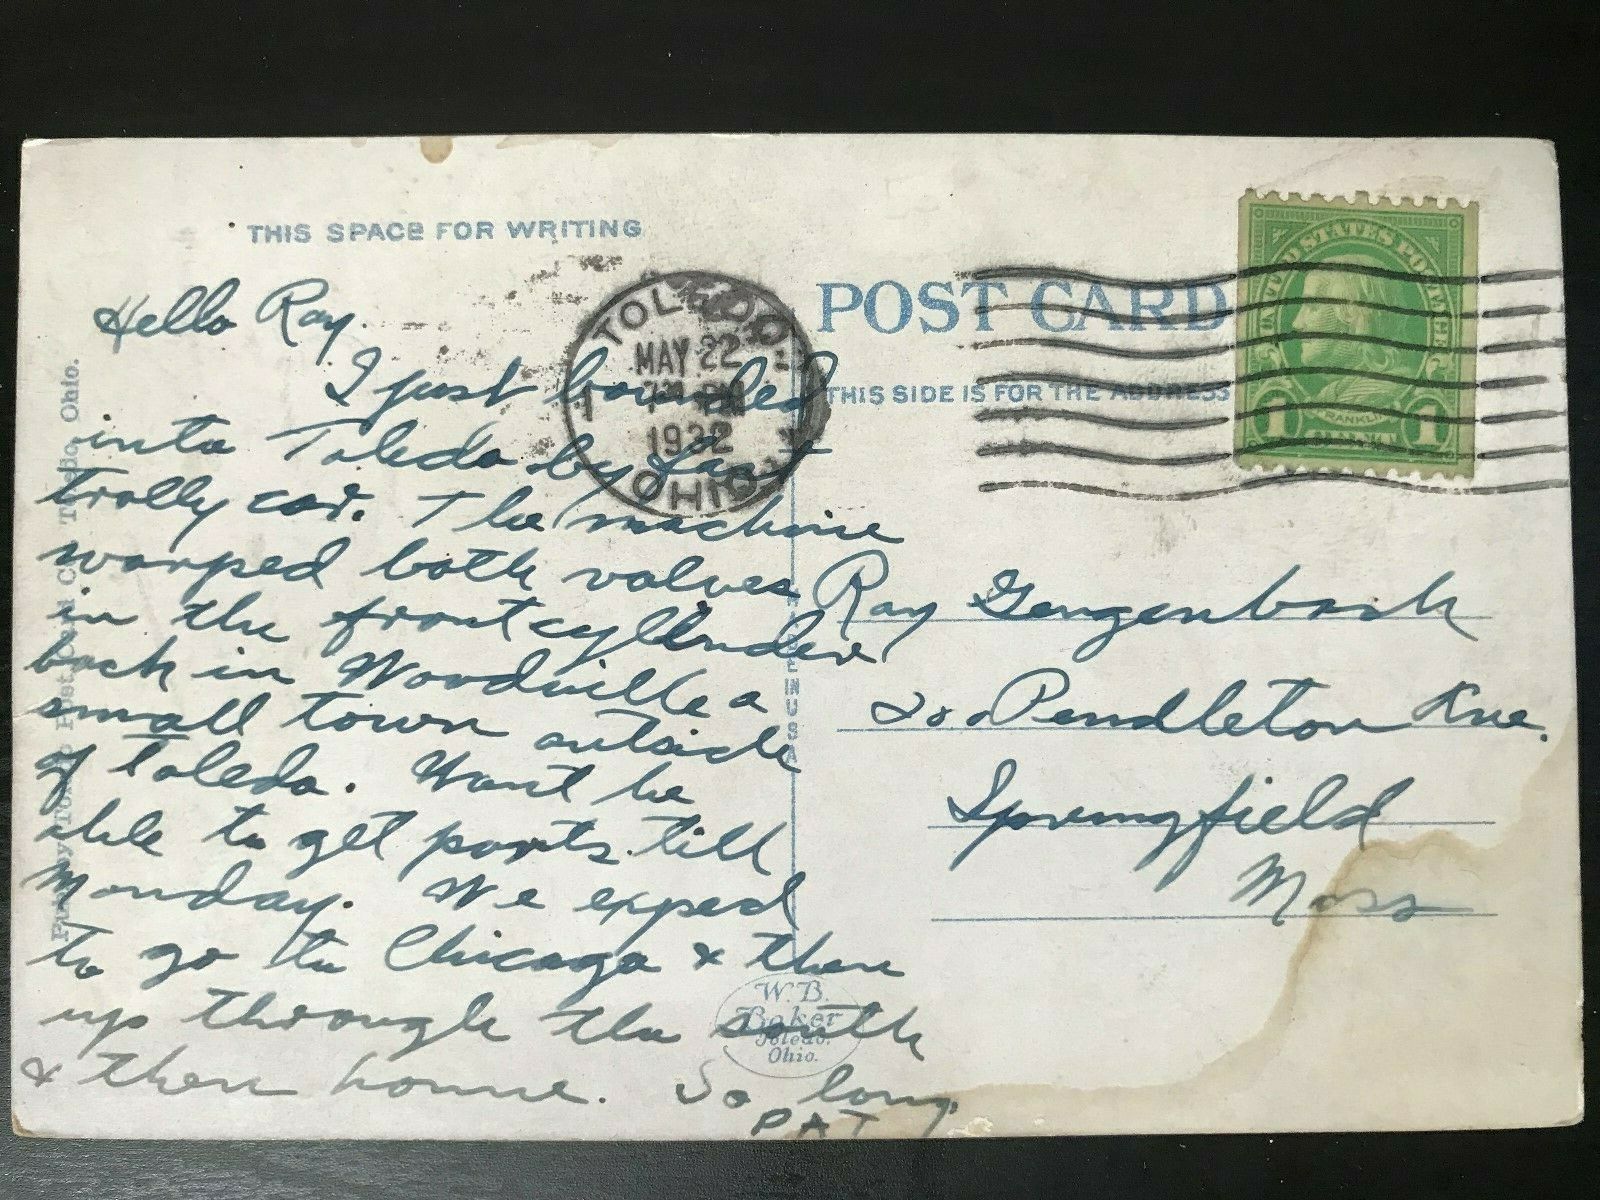 THIS SPACE FOR WRITING
Hello Ray.
I just bounded
into Toledo by fast
trolly car. The machine
warped both valves
in the front cyllinder
back in Woodville a
small town outside
of Toledo. Wont be
able to get parts till
Monday. We exped
to go to Chicago & then
up through the south
& then home. So long.
PAT
TOLEDO
MAY 22
PM
1932
OHIO
POST CARD
THIS SIDE IS FOR THE ADDRESS
UNITED STATES POSTAGE
FRANKLIN
1 1
Ray Gengenbach
200 Pendleton Ave.
Springfield
Mass
IN USA
W.B.
Baker
Toledo.
Ohio.
Post Card Co. Toledo, Ohio.